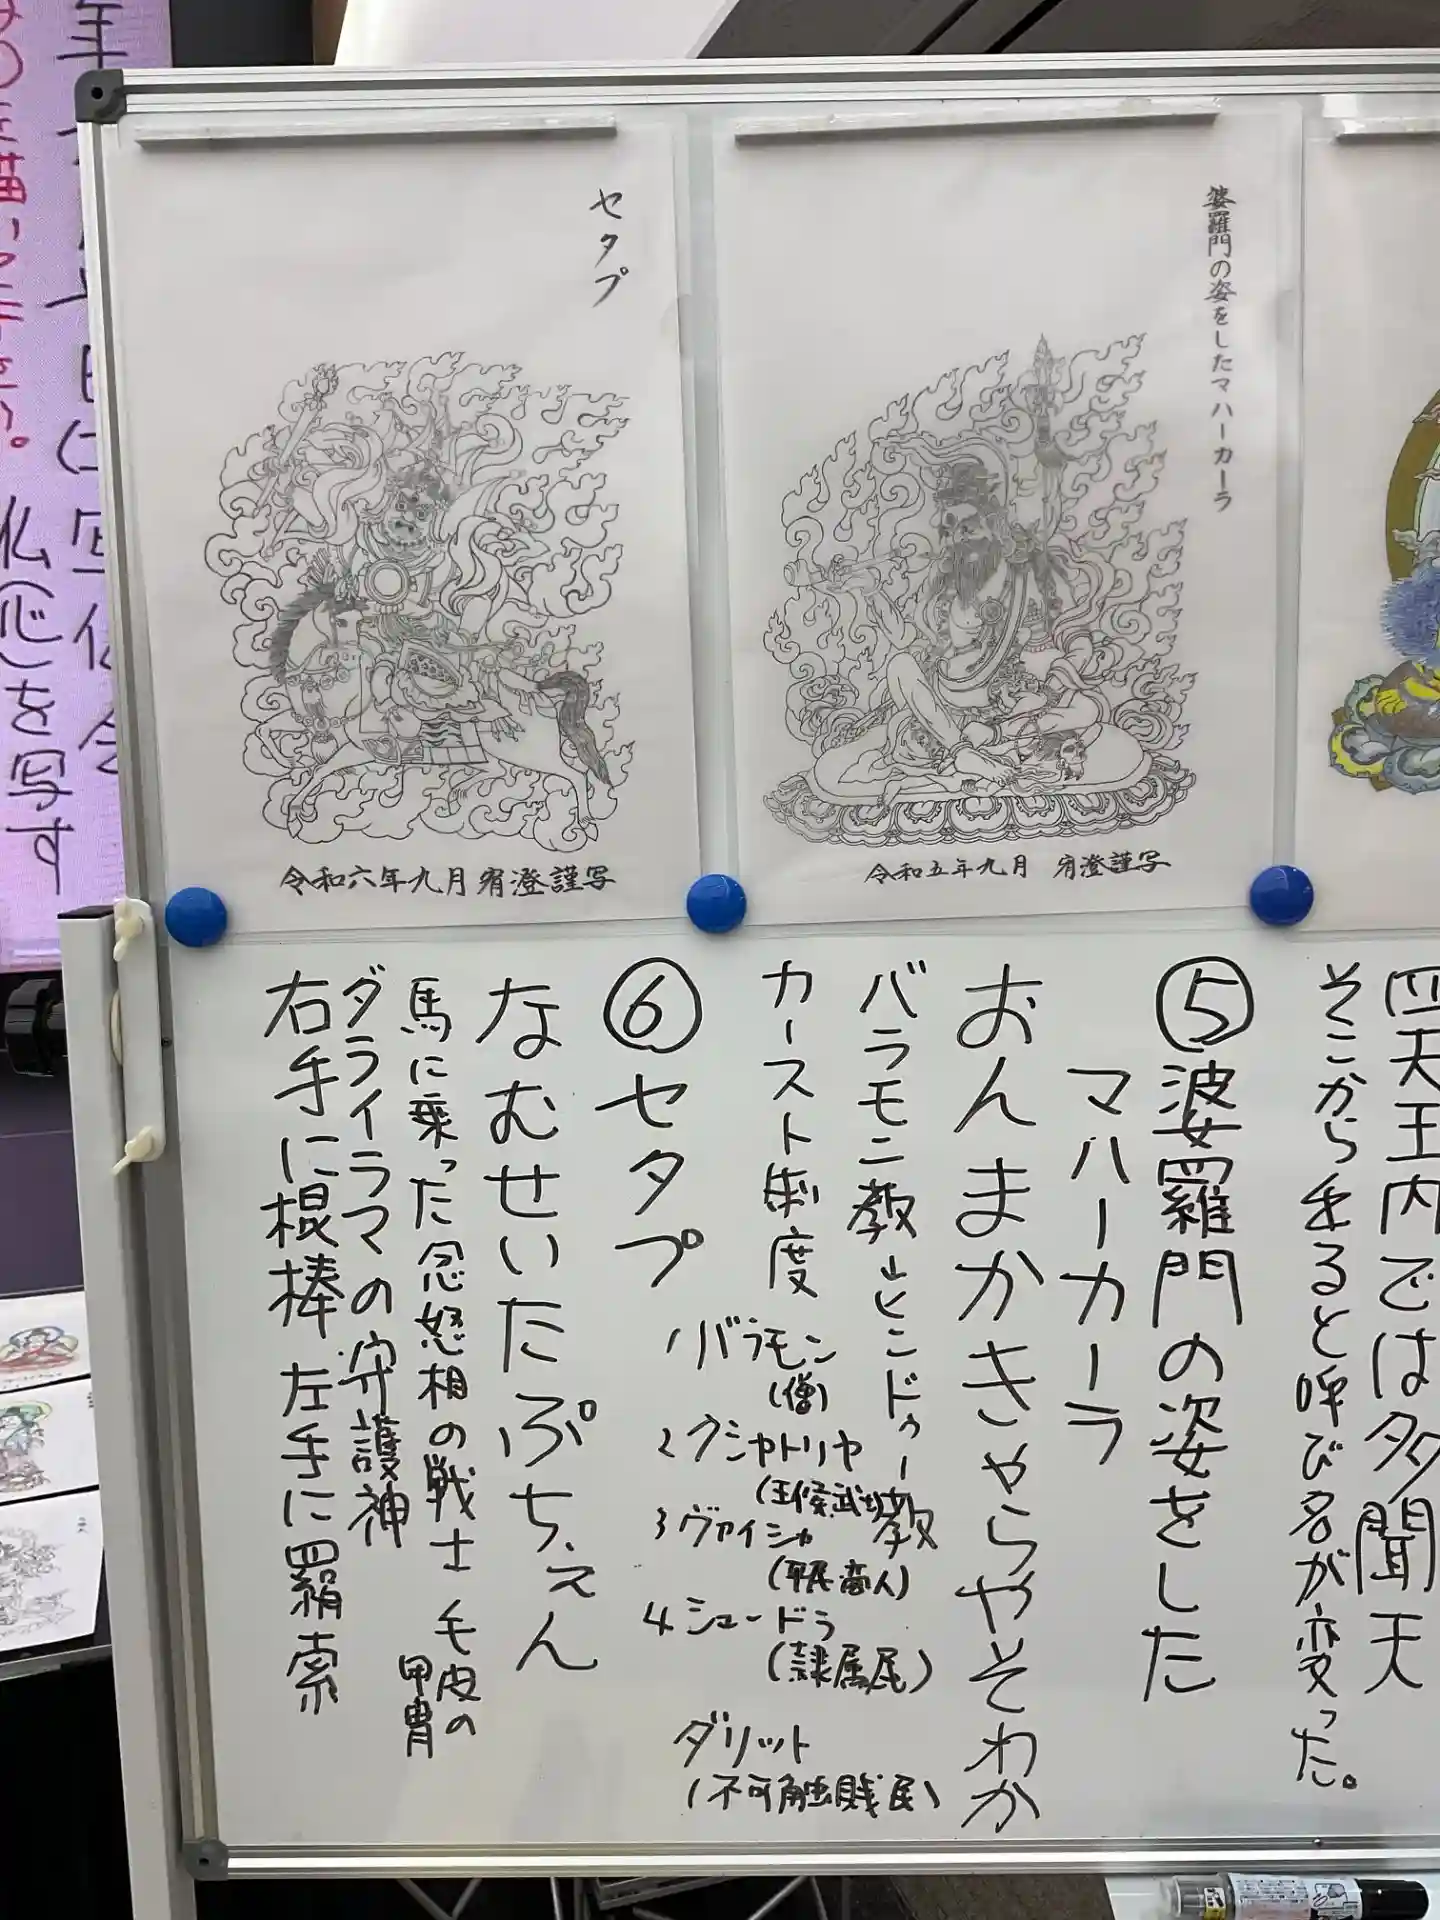 婆羅門の姿をしたマハーカーラ
令和五年九月 宥澄謹写
セタプ
令和六年九月宥澄謹写
四天王内では多聞天
そこから毛ると呼び名が変った。
⑤婆羅門の姿をした
マハーカーラ
おんまかきゃらやそわか
バラモン教→ヒンドゥー教
カースト制度
1バラモン
(僧)
2クシャトリヤ
(王候武士)
3ヴァイシャ
(平民商人)
4シュードラ
(隷属民)
ダリット
(不可触賎民)
⑥セタプ
なむせいたぷちぇん
馬に乗った忿怒相の戦士 毛皮の
甲冑
ダライラマの守護神
右手に棍棒 左手に羂索
仏(心)を写す